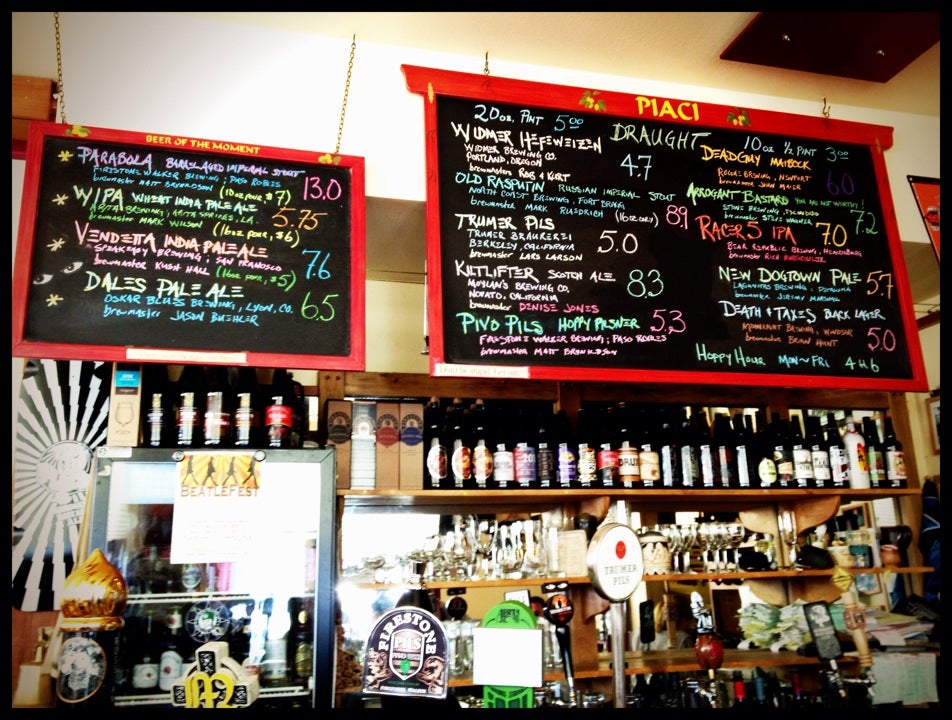 BEER OF THE MOMENT
PARABOLA BARREL AGED IMPERIAL STOUT
FIRESTONE WALKER BREWING, PASO ROBLES
brewmaster MATT BRYNILDSON
(10oz pour, $7)
13.0
WIPA WHEAT INDIA PALE ALE
brewmaster MARK WILSON
(16oz pour, $6)
5.75
VENDETTA INDIA PALE ALE
SPEAKEASY BREWING, SAN FRANCISCO
brewmaster KUSH HALL
(16oz pour, $5)
7.6
DALES PALE ALE
OSKAR BLUES BREWING, LYON, CO.
brewmaster JASON BUEHLER
6.5
PIACI
20oz. PINT 5.00
DRAUGHT
10oz ½ PINT 3.00
WIDMER HEFEWEIZEN
WIDMER BREWING CO.
PORTLAND, OREGON
brewmasters ROB & KURT
4.7
OLD RASPUTIN RUSSIAN IMPERIAL STOUT
NORTH COAST BREWING, FORT BRAGG
brewmaster MARK RUEDRICH
(10oz only)
8.9
TRUMER PILS
TRUMER BRAUEREI
BERKELEY, CALIFORNIA
brewmaster LARS LARSON
5.0
KILTLIFTER SCOTCH ALE
MOYLAN'S BREWING CO.
NOVATO, CALIFORNIA
brewmaster DENISE JONES
8.3
PIVO PILS HOPPY PILSNER
FIRESTONE WALKER BREWING, PASO ROBLES
brewmaster MATT BRYNILDSON
5.3
DEADGUY MAIBOCK
ROGUE BREWING, NEWPORT
brewmaster JOHN MAIER
6.0
ARROGANT BASTARD YOU ARE NOT WORTHY!
STONE BREWING, ESCONDIDO
brewmaster STEVE WAGNER
7.2
RACER 5 IPA
BEAR REPUBLIC BREWING, HEALDSBURG
brewmaster RICH NORGROVE
7.0
NEW DOGTOWN PALE
LAGUNITAS BREWING, PETALUMA
brewmaster JEREMY MARSHALL
5.7
DEATH & TAXES BLACK LAGER
MOONLIGHT BREWING, WINDSOR
brewmaster BRIAN HUNT
5.0
HAPPY HOUR MON~FRI 4 to 6
BEATLEFEST
TRUMER
PILS
FIRESTONE
PILS
PIVO